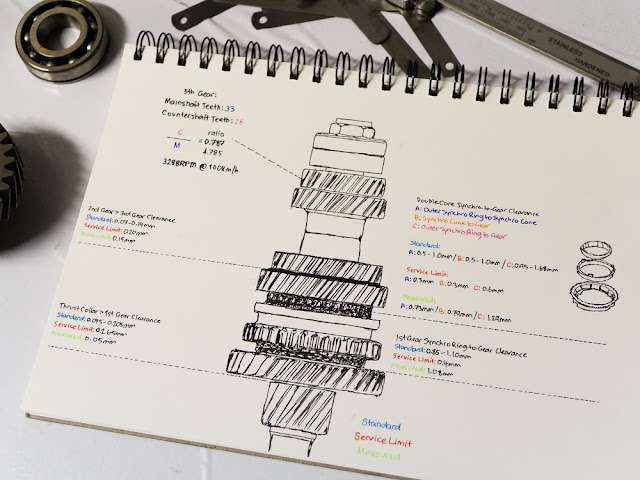 STAINLESS
HARDENED
5th Gear:
Mainshaft Teeth: 33
Countershaft Teeth: 26
ratio
C
M
= 0.787
4.785
3288RPM @ 100km/h
2nd Gear > 3rd Gear Clearance
Standard: 0.07-0.14mm
Service Limit: 0.20mm
Measured: 0.15mm
Thrust Collar > 1st Gear Clearance
Standard:
Service Limit:
Measured: 0.05mm
Double Cone Synchro-to-Gear Clearance
A: Outer Synchro Ring to Synchro Cone
B: Synchro Cone to Gear
C: Outer Synchro Ring to Gear
Standard:
A: 0.5-1.0mm / B: 0.5-1.0mm / C: 0.95-1.68mm
Service Limit:
A: 0.3mm B: 0.3mm C: 0.6mm
Measured:
A: 0.73mm / B: 0.79mm / C:
1st Gear Synchro Ring to Gear Clearance
Standard: 0.85-1.10mm
Service Limit: 0.4mm
Measured: 1.08mm
Standard
Service Limit
Measured